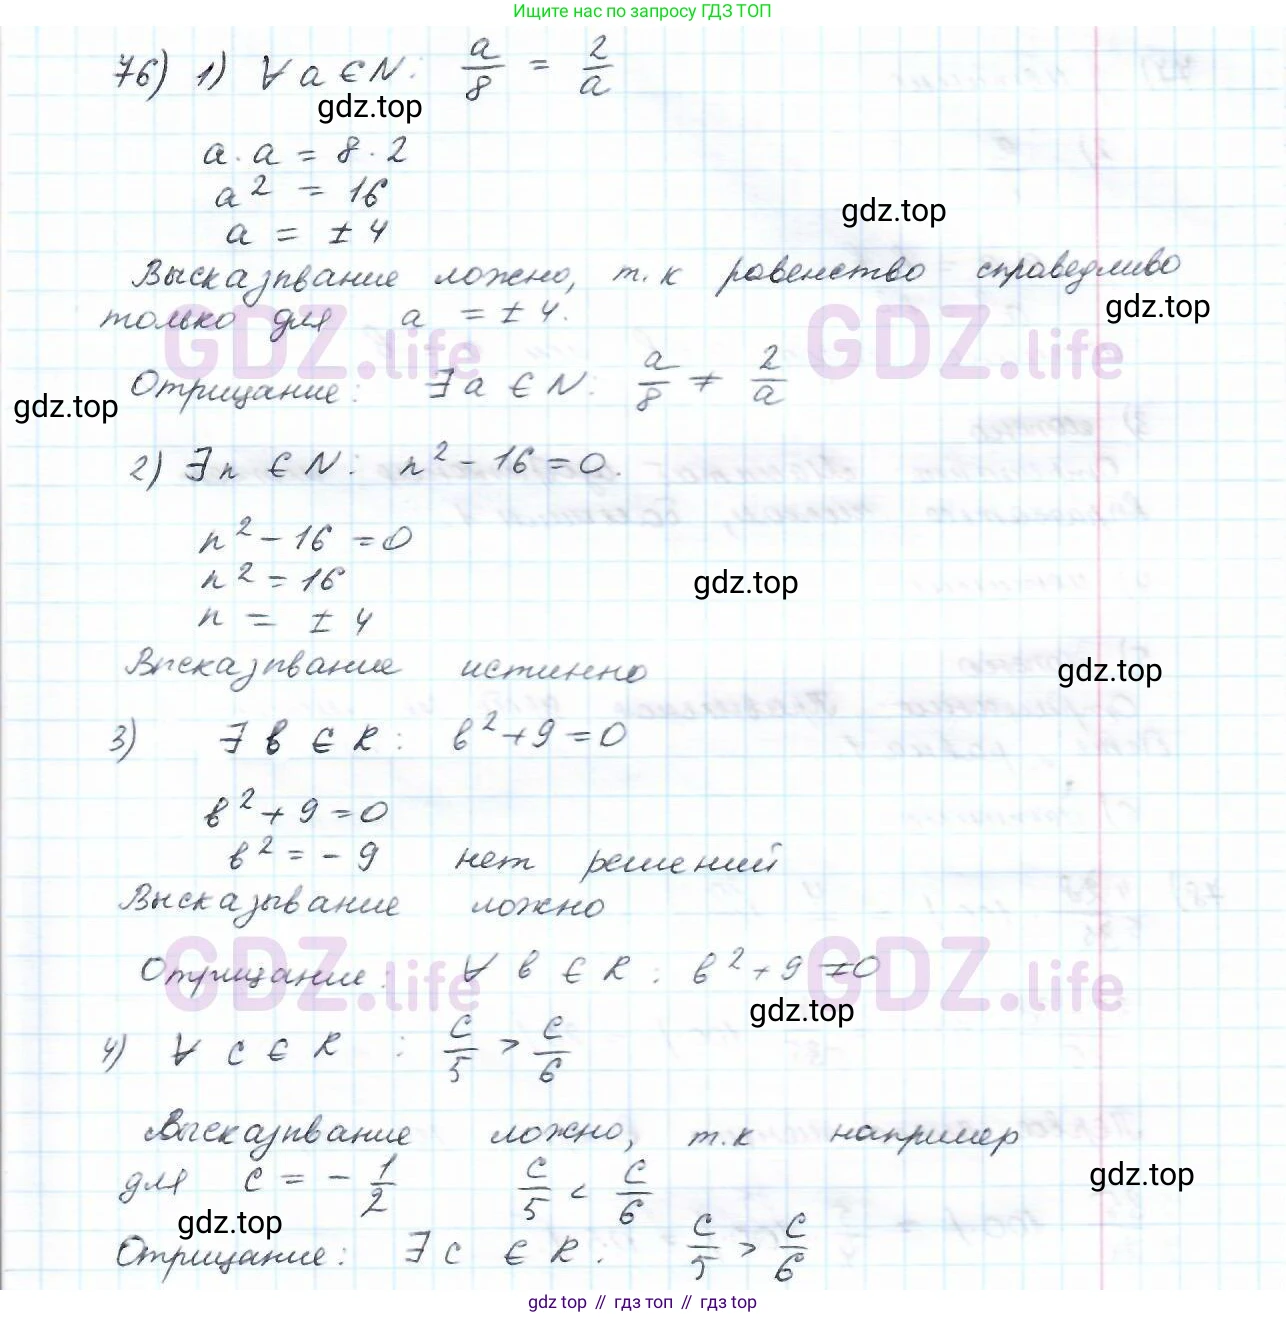 Ищите нас по запросу ГДЗ ТОП
76) 1) ∀ a ∈ N: a/8 = 2/a
gdz.top
a · a = 8 · 2
a² = 16
gdz.top
a = ± 4
Высказывание ложно, т.к равенство справедливо
gdz.top
только для a = ± 4.
GDZ.life GDZ.life
Отрицание: ∃ a ∈ N: a/8 ≠ 2/a
gdz.top
2) ∃ n ∈ N: n² - 16 = 0.
n² - 16 = 0
n² = 16
gdz.top
n = ± 4
Высказывание истинно
gdz.top
3) ∃ в ∈ R: в² + 9 = 0
в² + 9 = 0
в² = - 9 нет решений
Высказывание ложно
GDZ.life GDZ.life
Отрицание: ∀ в ∈ R: в² + 9 ≠ 0
gdz.top
4) ∀ c ∈ R: c/5 > c/6
Высказывание ложно, т.к например
для c = - 1/2 c/5 < c/6
gdz.top
gdz.top
Отрицание: ∃ c ∈ R: c/5 > c/6
gdz top // гдз топ // гдз top